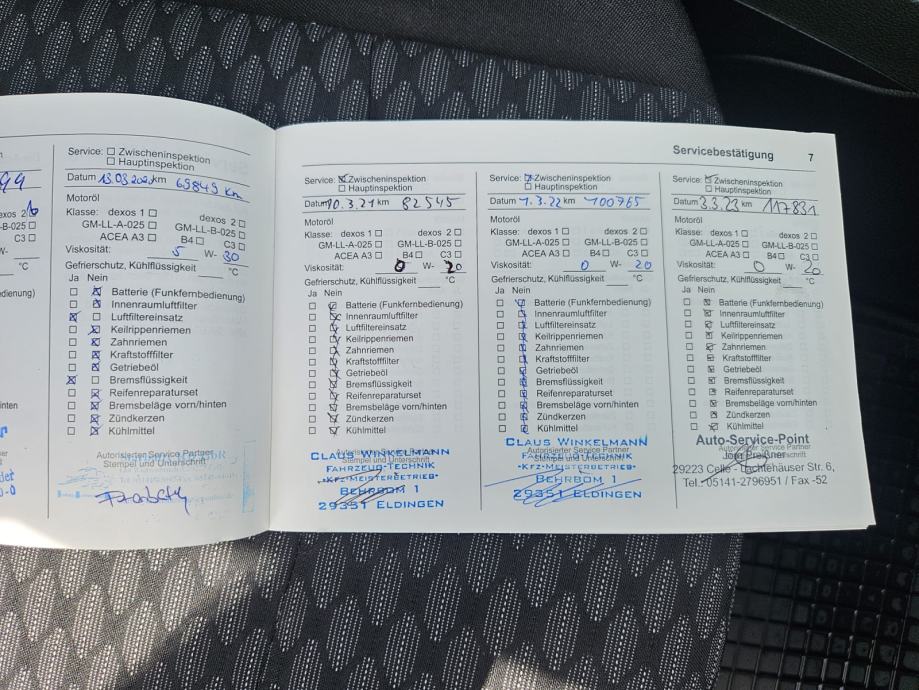 99
exos 2
-B-025
C3
W-
°C
Service: Zwischeninspektion
Hauptinspektion
Datum 13.03.2020 km 69849 Km
Motoröl
Klasse: dexos 1 dexos 2
GM-LL-A-025 GM-LL-B-025
ACEA A3 B4 C3
Viskosität: 5 W- 30
Gefrierschutz, Kühlflüssigkeit °C
Ja Nein
Batterie (Funkfernbedienung)
Innenraumluftfilter
Luftfiltereinsatz
Keilrippenriemen
Zahnriemen
Kraftstofffilter
Getriebeöl
Bremsflüssigkeit
Reifenreparaturset
Bremsbeläge vorn/hinten
Zündkerzen
Kühlmittel
Autorisierter Service Partner
Stempel und Unterschrift
Servicebestätigung 7
Service: Zwischeninspektion
Hauptinspektion
Datum 10.3.21 km 82545
Motoröl
Klasse: dexos 1 dexos 2
GM-LL-A-025 GM-LL-B-025
ACEA A3 B4 C3
Viskosität: 0 W- 20
Gefrierschutz, Kühlflüssigkeit °C
Ja Nein
Batterie (Funkfernbedienung)
Innenraumluftfilter
Luftfiltereinsatz
Keilrippenriemen
Zahnriemen
Kraftstofffilter
Getriebeöl
Bremsflüssigkeit
Reifenreparaturset
Bremsbeläge vorn/hinten
Zündkerzen
Kühlmittel
CLAUS WINKELMANN
FAHRZEUG-TECHNIK
•KFZ-MEISTERBETRIEB•
BEHRBOM 1
29351 ELDINGEN
Service: Zwischeninspektion
Hauptinspektion
Datum 1.3.22 km 100765
Motoröl
Klasse: dexos 1 dexos 2
GM-LL-A-025 GM-LL-B-025
ACEA A3 B4 C3
Viskosität: 0 W- 20
Gefrierschutz, Kühlflüssigkeit °C
Ja Nein
Batterie (Funkfernbedienung)
Innenraumluftfilter
Luftfiltereinsatz
Keilrippenriemen
Zahnriemen
Kraftstofffilter
Getriebeöl
Bremsflüssigkeit
Reifenreparaturset
Bremsbeläge vorn/hinten
Zündkerzen
Kühlmittel
CLAUS WINKELMANN
FAHRZEUG-TECHNIK
•KFZ-MEISTERBETRIEB•
BEHRBOM 1
29351 ELDINGEN
Service: Zwischeninspektion
Hauptinspektion
Datum 3.3.23 km 117831
Motoröl
Klasse: dexos 1 dexos 2
GM-LL-A-025 GM-LL-B-025
ACEA A3 B4 C3
Viskosität: 0 W- 20
Gefrierschutz, Kühlflüssigkeit °C
Ja Nein
Batterie (Funkfernbedienung)
Innenraumluftfilter
Luftfiltereinsatz
Keilrippenriemen
Zahnriemen
Kraftstofffilter
Getriebeöl
Bremsflüssigkeit
Reifenreparaturset
Bremsbeläge vorn/hinten
Zündkerzen
Kühlmittel
Auto-Service-Point
29223 Celle - Lachtehäuser Str. 6,
Tel.: 05141-2796951 / Fax -52